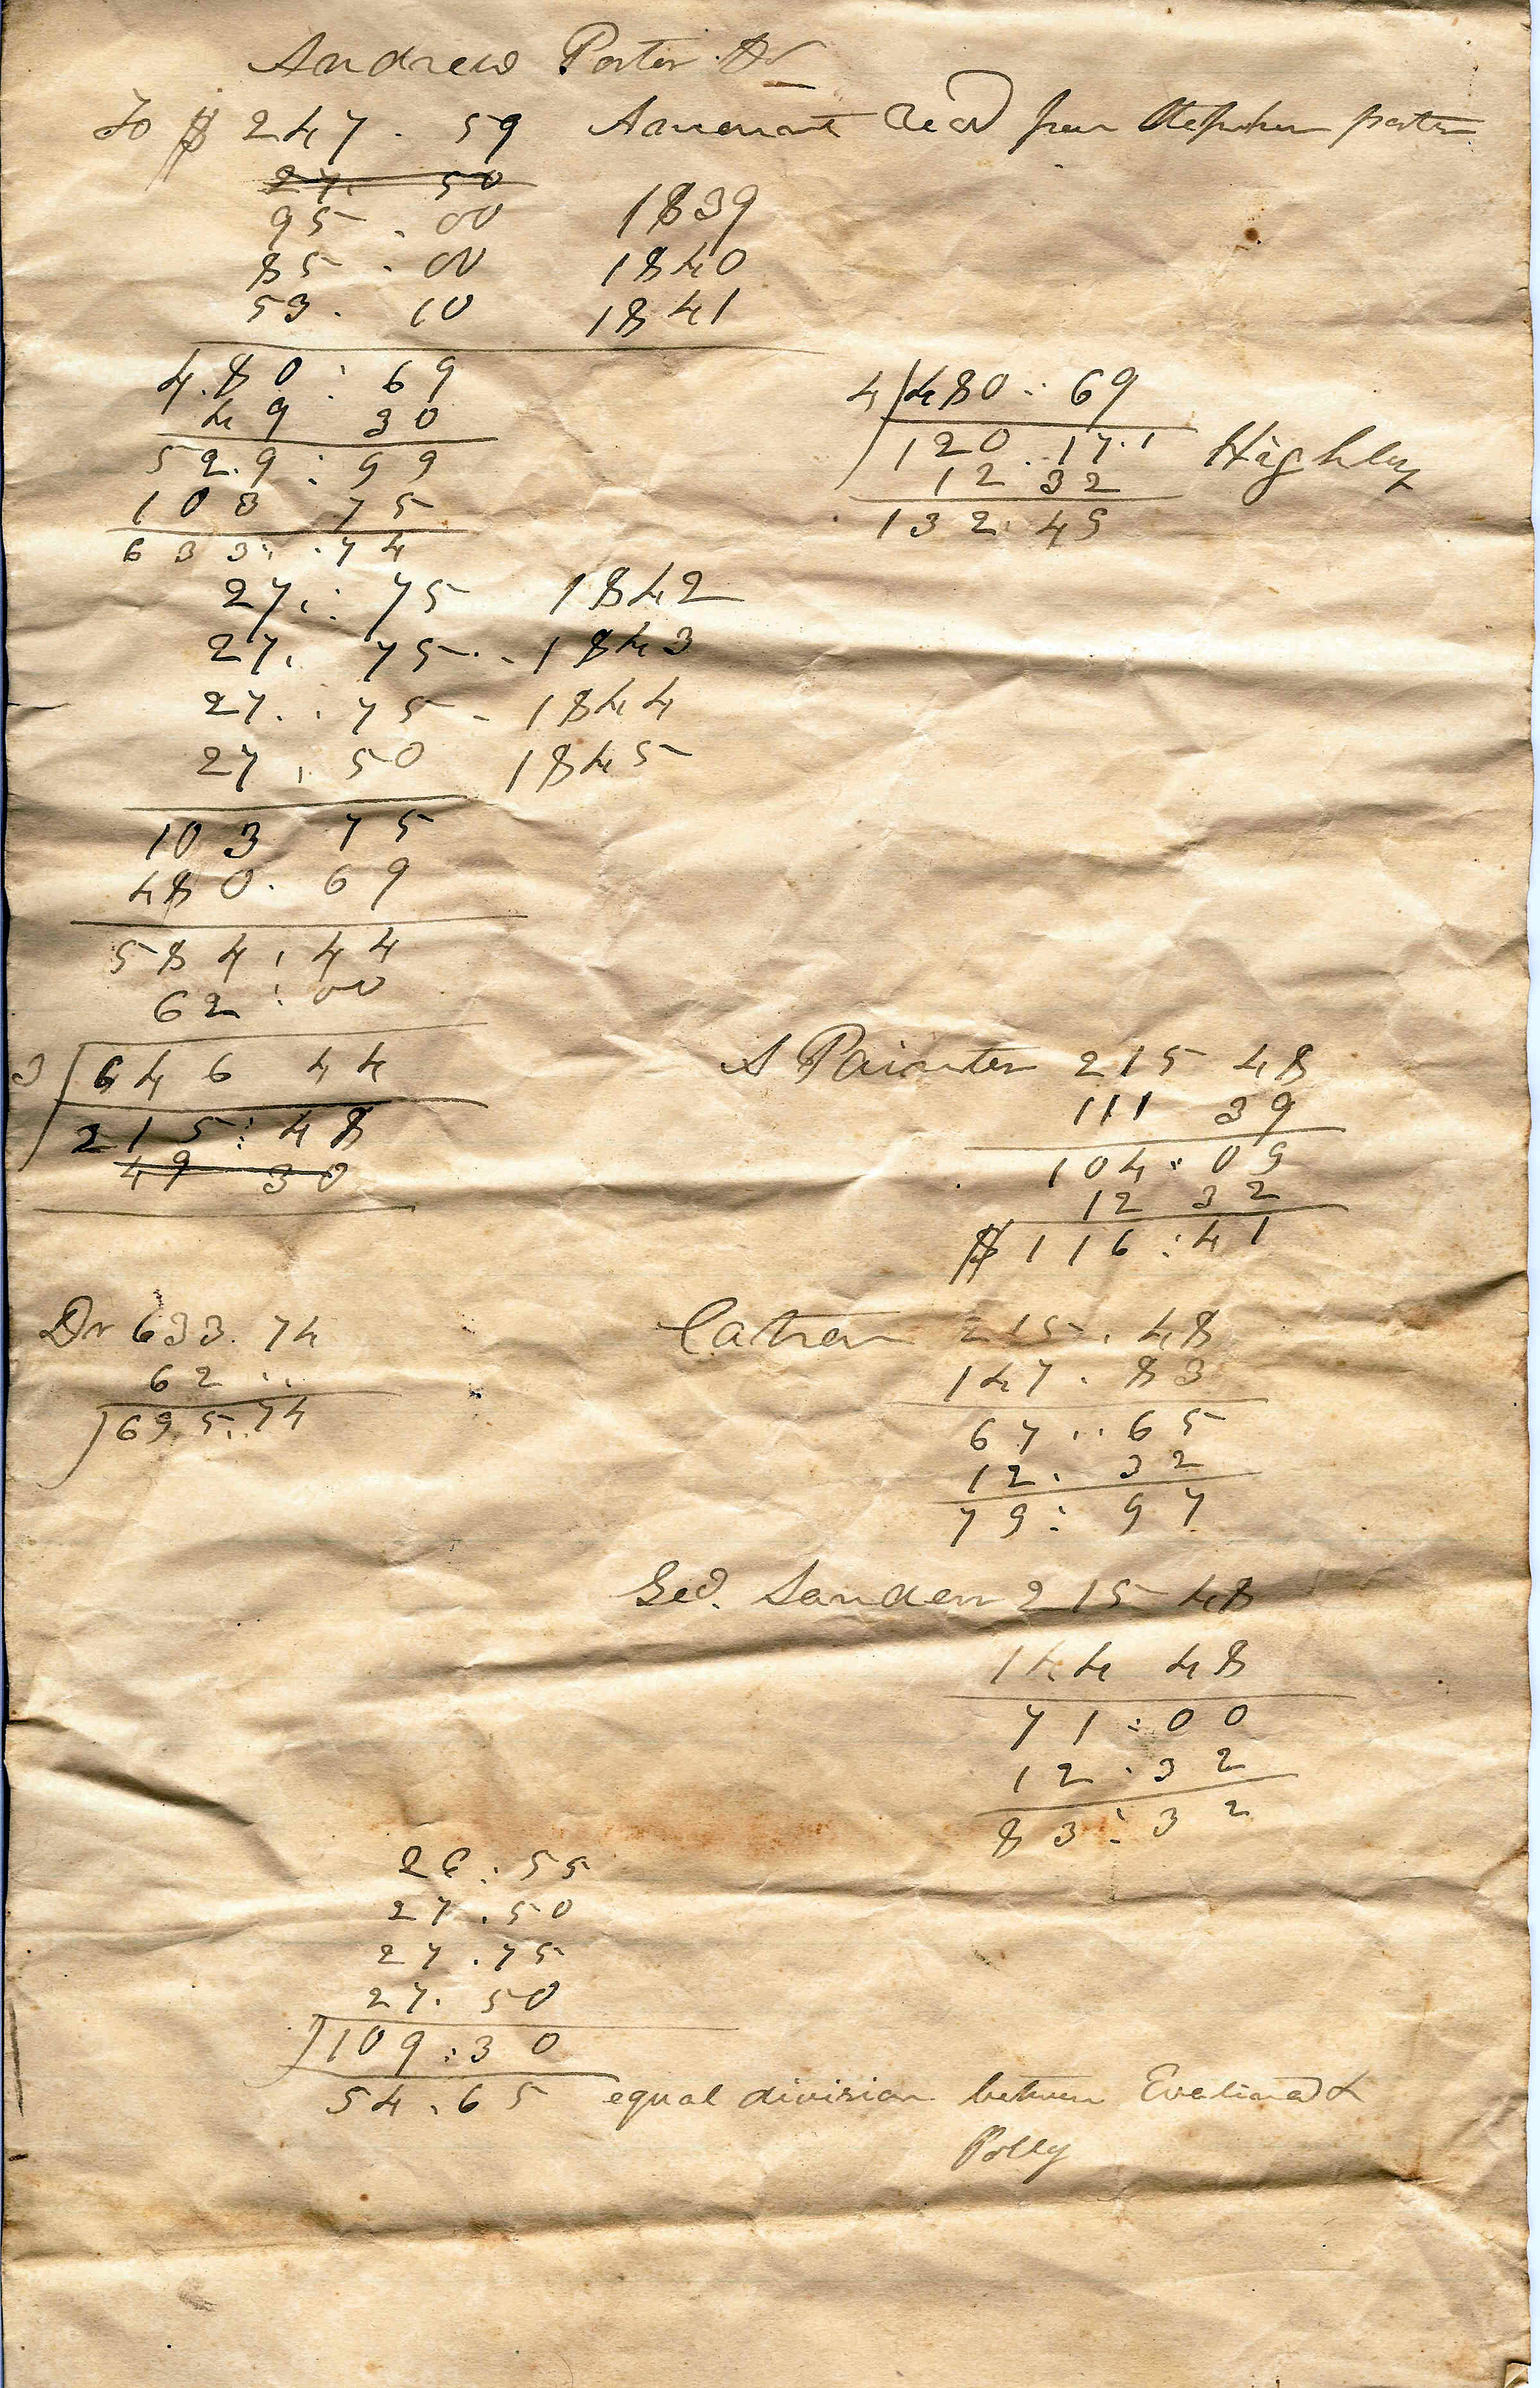 Andrew Porter Dr
To $ 247. 59 Amount Recd from Stephen porter
27. 50
95. 00 1839
85. 00 1840
53. 10 1841
480: 69
49 30
529: 99
103 75
633: 74
4 480: 69
120. 17.1 Highley
12 32
132. 49
27: 75 1842
27. 75 - 1843
27. 75 - 1844
27. 50 1845
103 75
480. 69
584. 44
62: 00
3 646 44
215: 48
49 30
S Painter 215 48
111 39
104: 09
12 32
$ 116: 41
Dr 633. 74
62 ..
695. 74
Catron 215. 48
147. 83
67.. 65
12. 32
79: 97
Geo. Sanders 215 48
144 48
71: 00
12. 32
83: 32
26: 55
27. 50
27. 75
27. 50
109: 30
54. 65 equal division between Evalina &
Polly